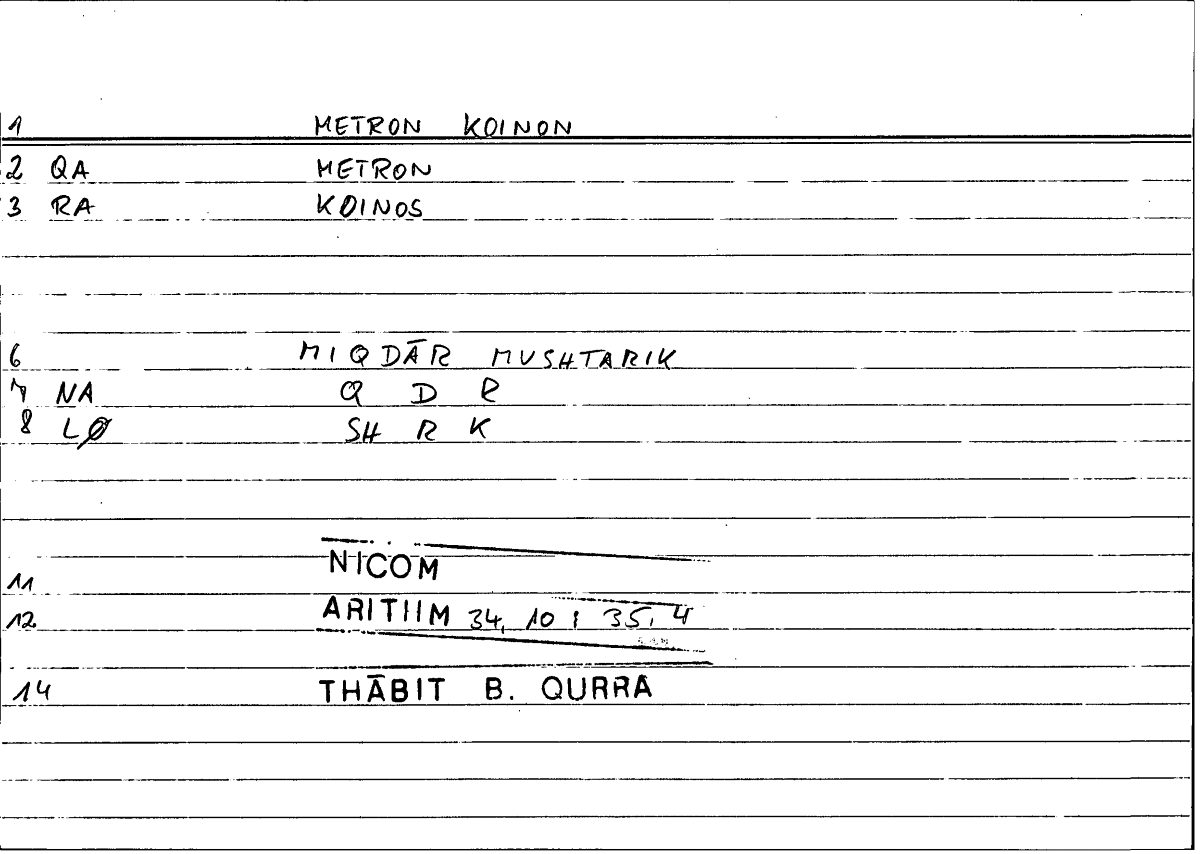 1 METRON KOINON
2 QA METRON
3 RA KOINOS
6 MIQDĀR MUSHTARIK
7 NA Q D R
8 LØ SH R K
11 NICOM
12. ARITIIM 34, 10 ; 35, 4
14 THĀBIT B. QURRA